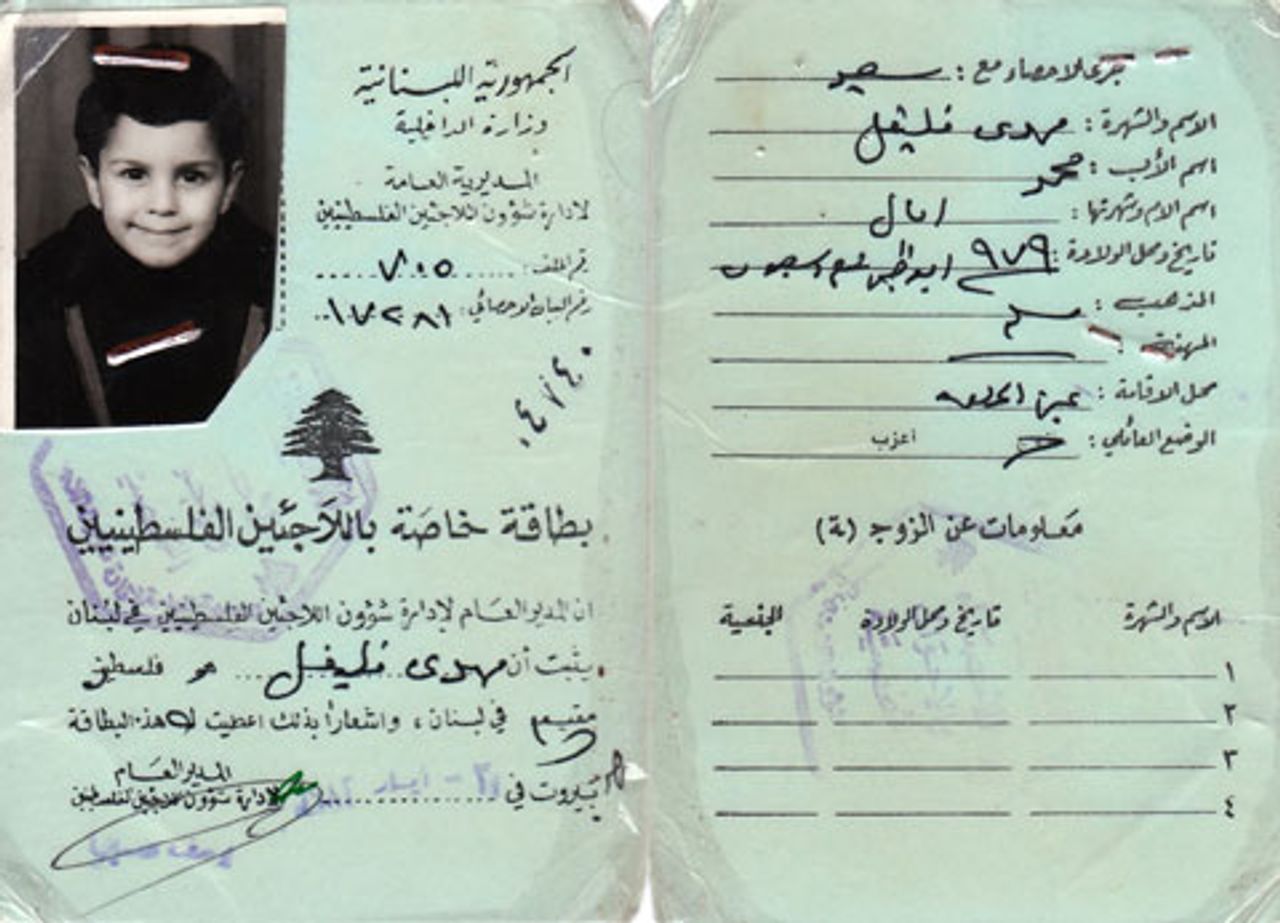 الجمهورية اللبنانية
وزارة الداخلية
المديرية العامة
لادارة شؤون اللاجئين الفلسطينيين
رقم الملف: ٧٠٥
رقم البيان الاحصائي: ١٧٢٨١
بطاقة خاصة باللاجئين الفلسطينيين
ان المدير العام لإدارة شؤون اللاجئين الفلسطينيين في لبنان
يثبت أن مهدى فليفل هو فلسطيني
مقيم في لبنان، واشعاراً بذلك اعطيت له هذه البطاقة
بيروت في
المدير العام
لإدارة شؤون اللاجئين الفلسطينيين
جرى الاحصاء مع: سعيد
الاسم والشهرة: مهدى فليفل
اسم الأب: محمد
اسم الام وشهرتها: امال
تاريخ ومحل الولادة: ٩٧٩
المذهب: مسلم
المهنة:
محل الاقامة: عين الحلوه
الوضع العائلي: أعزب
معلومات عن الزوج (ـة)
الاسم والشهرة تاريخ ومحل الولادة الجنسية
١
٢
٣
٤